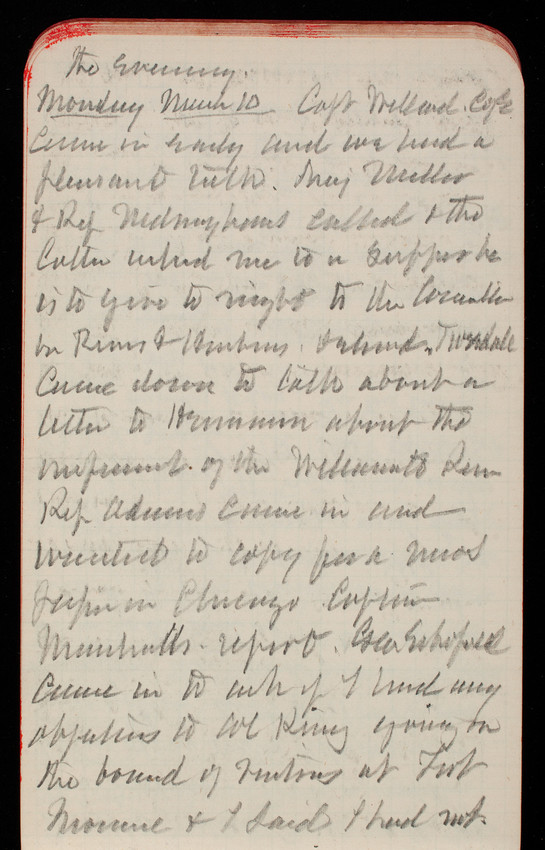 the evening.
Monday March 10 Capt Willard. CofE
Came in early and we had a
pleasant talk. Maj Miller
& Rep called & the
latter asked me to a supper he
is to give to night to the Committee
on Rivers & Harbors.
Came down to talk about a
letter to Hermann about the
of the Willamette River
Rep Adams came in and
wanted to copy for a news
paper in Chicago Captain
Marshalls report. Gen Schofield
Came in to ask if I had any
objections to Col King going on
the board of visitors at Fort
Monroe & I said I had not.